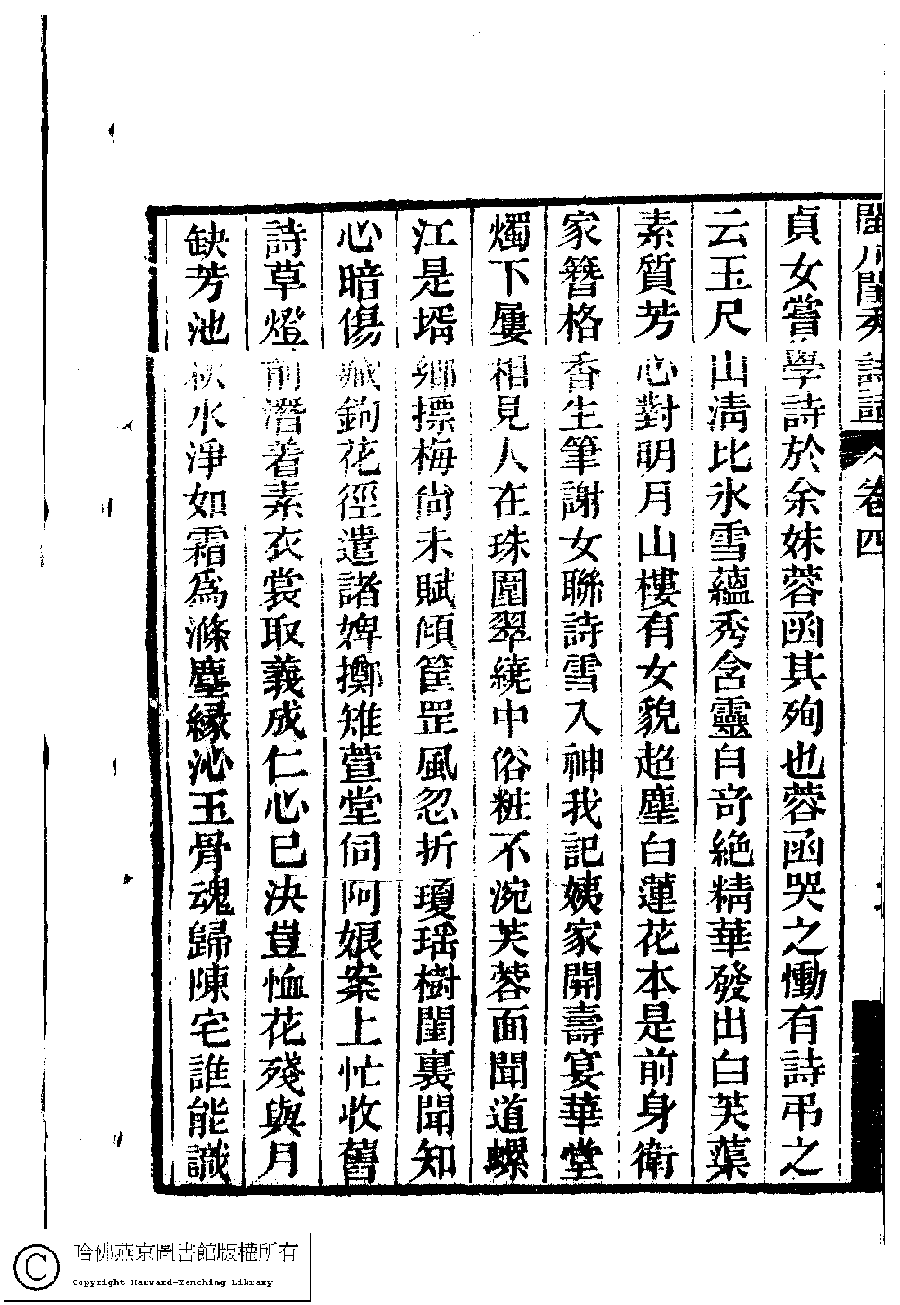 閨川閨秀詩話 卷四
貞女嘗學詩於余妹蓉函其殉也蓉函哭之慟有詩弔之
云玉尺山淸比氷雪蘊秀含靈自竒絶精華發出白芙蕖
素質芳心對明月山樓有女貌超塵白蓮花本是前身衛
家簪格香生筆謝女聯詩雪入神我記姨家開壽宴華堂
燭下屢相見人在珠圍翠繞中俗粧不涴芙蓉面聞道螺
江是壻鄉摽梅尙未賦傾筐罡風忽折瓊瑤樹閨裏聞知
心暗傷藏鉤花徑遣諸婢擲雉萱堂伺阿娘案上忙收舊
詩草燈前潛着素衣裳取義成仁心已決豈恤花殘與月
缺芳池秋水淨如霜爲滌塵緣沁玉骨魂歸陳宅誰能識
哈佛燕京圖書館版權所有
Copyright Harvard-Yenching Library